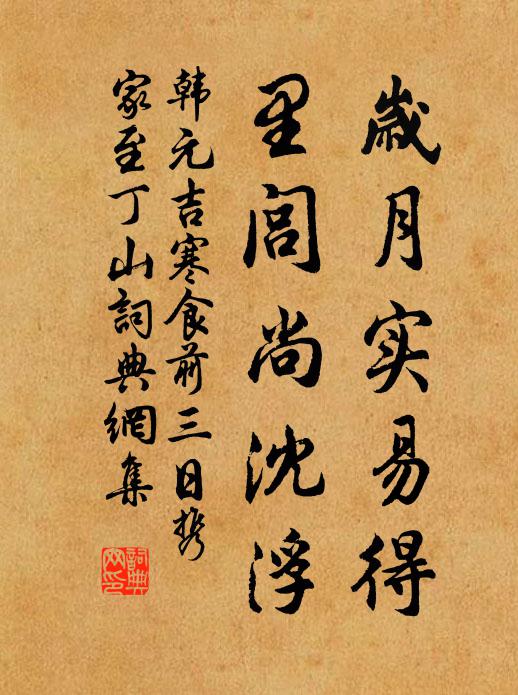 歲月实易得
里闾尚沈浮
韩元吉寒食前三日携
家至丁山詞典網集
詞典
网印